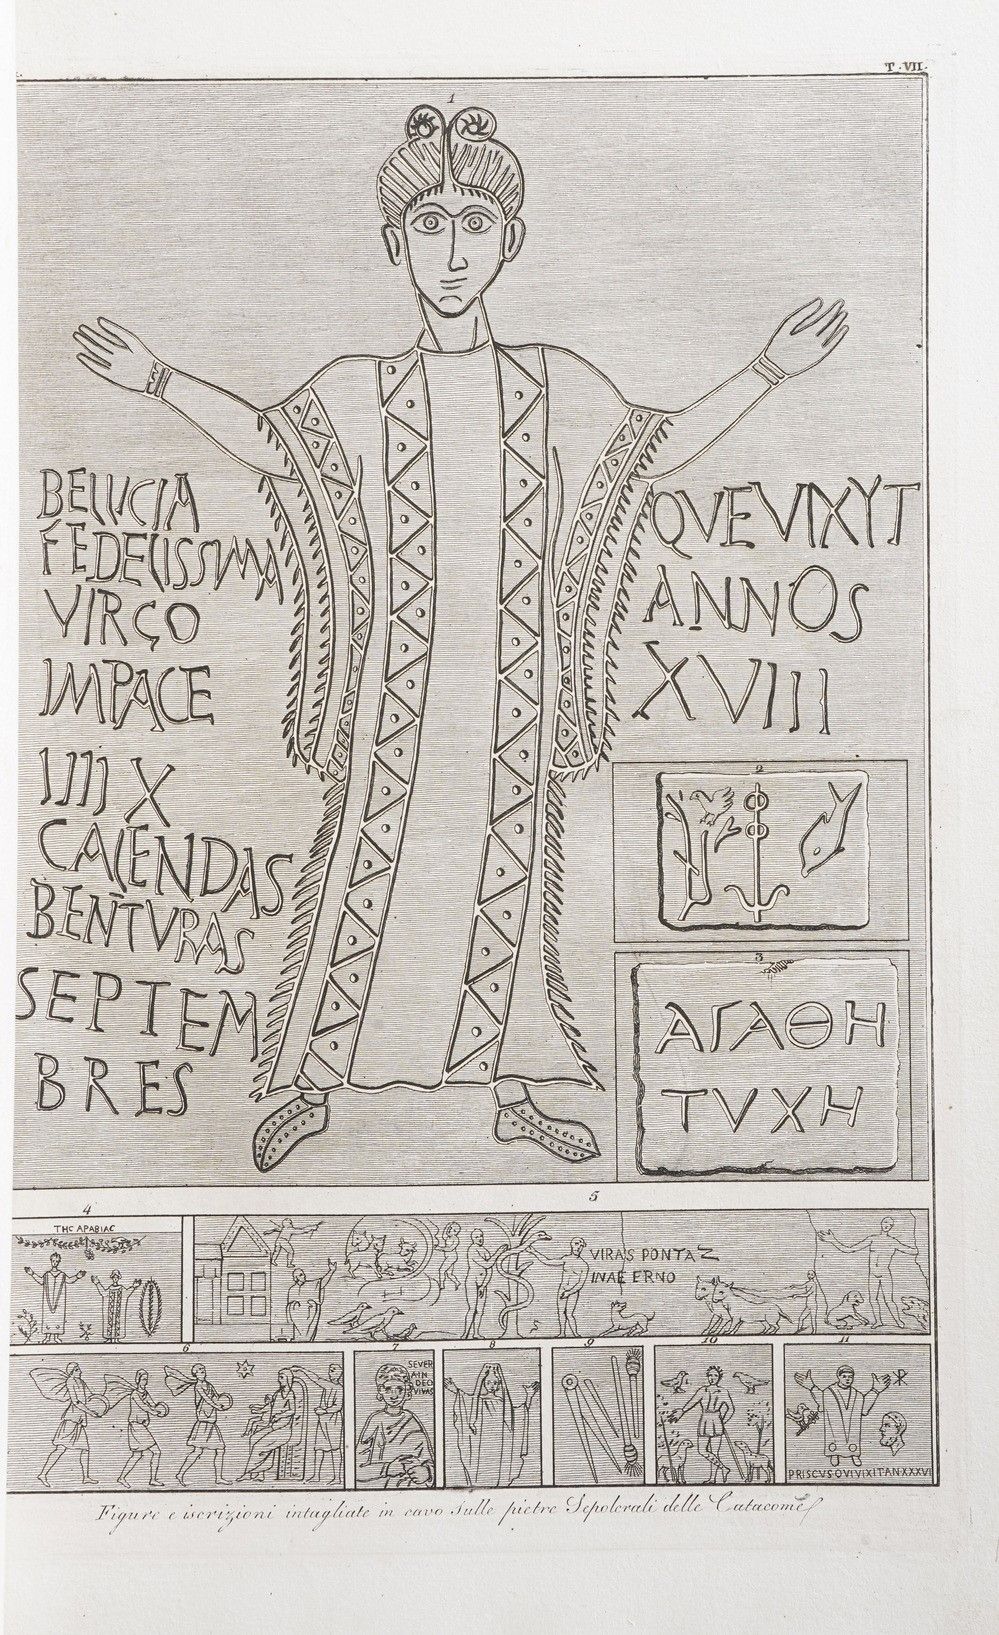 T. VII.
1
BELLICIA
FEDELISSIMA
VIRGO
IMPACE
IIII X
CALENDAS
BENTVRAS
SEPTEM
BRES
QVE VIXYT
ANNOS
XVIII
2
3
ΑΓΑΘΗ
ΤVΧΗ
4
THC APABIAC
5
VIRAS PONTAZ
INAE ERNO
6
7
SEVER
AIN
DEO
VIVAS
8
9
10
11
PRISCVS QVI VIXIT AN XXXVI
Figure e iscrizioni intagliate in cavo sulle pietre Sepolcrali delle Catacome